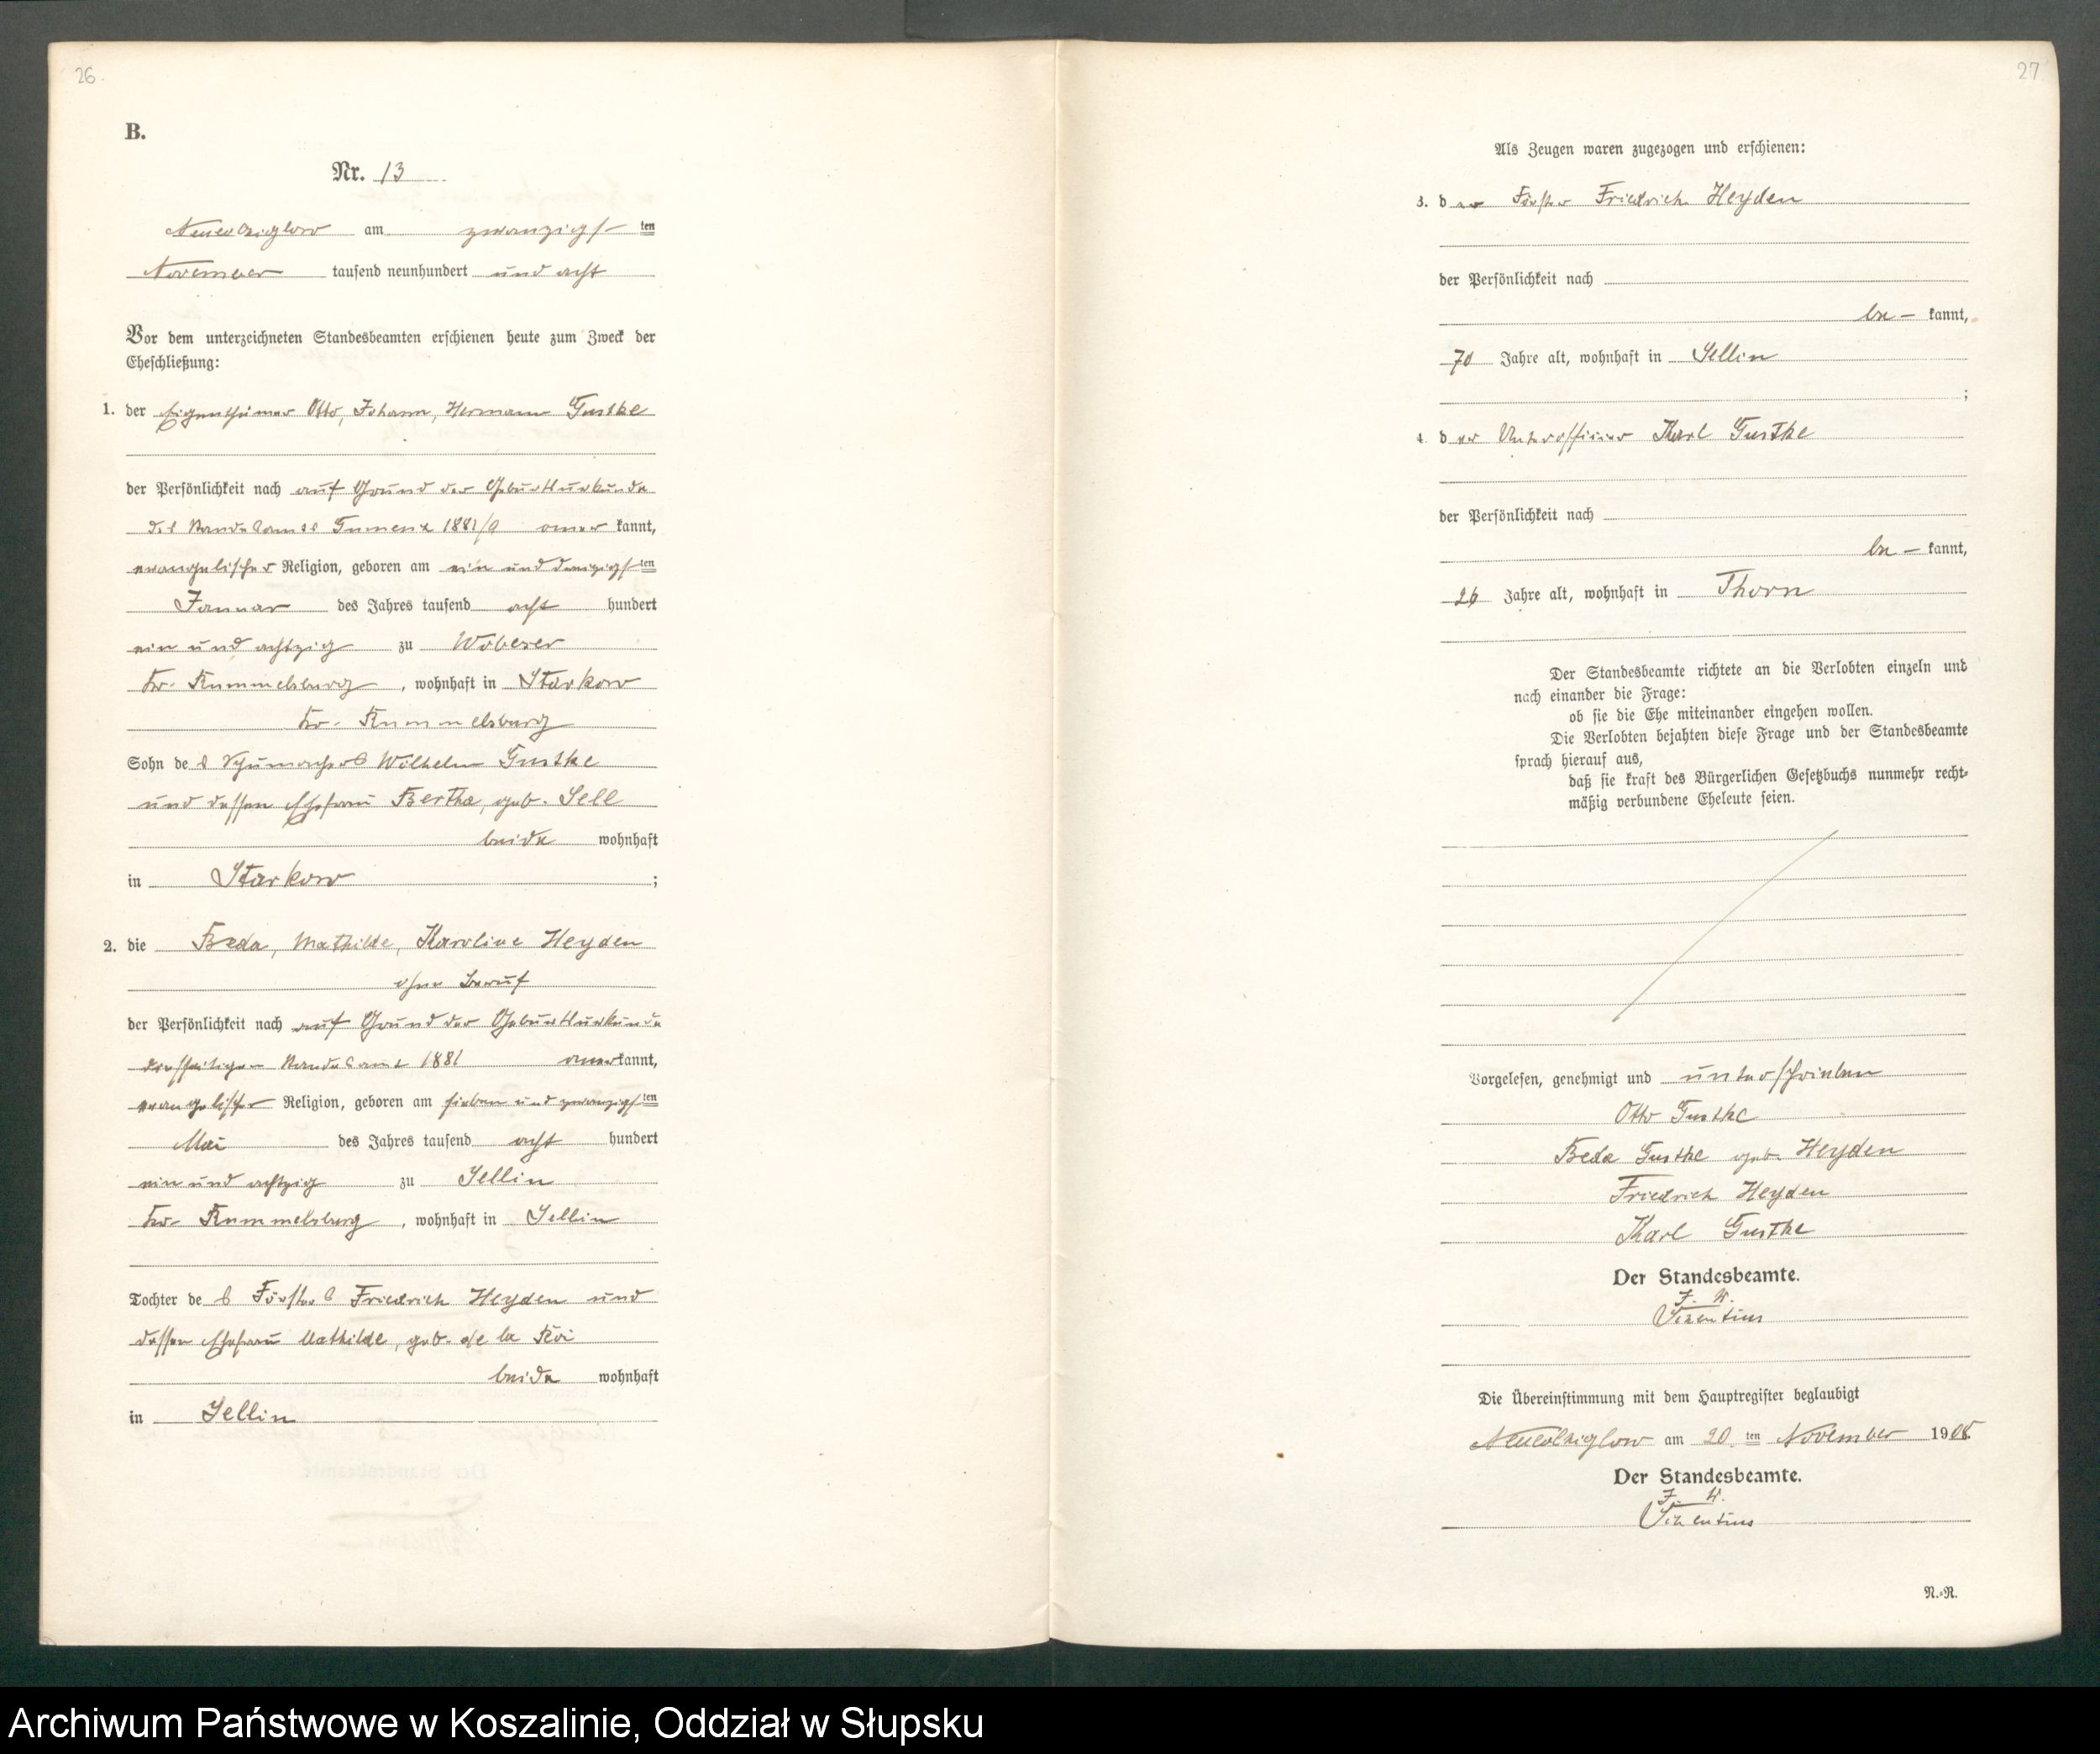 26.
B.
Nr. 13
am zwanzigsten
November tausend neunhundert und acht
Vor dem unterzeichneten Standesbeamten erschienen heute zum Zweck der
Eheschließung:
1. der Eigenthümer Otto, Johann, Hermann Gustke
der Persönlichkeit nach auf Grund der Geburtsurkunde
des Standesamts 1881/9 anerkannt,
evangelischer Religion, geboren am ein und ten
Januar des Jahres tausend acht hundert
ein und achtzig zu Wobeser
Kr. Rummelsburg, wohnhaft in Starkow
Kr. Rummelsburg
Sohn des Schumachers Wilhelm Gustke
und dessen Ehefrau Bertha, geb. Sell
beide wohnhaft
in Starkow;
2. die Beda, Mathilde, Karoline Heyden
ohne Beruf
der Persönlichkeit nach auf Grund der Geburtsurkunde
diesseitigen Standesamt 1881 anerkannt,
evangelischer Religion, geboren am sieben und zwanzigsten
Mai des Jahres tausend acht hundert
ein und achtzig zu Sellin
Kr. Rummelsburg, wohnhaft in Sellin
Tochter des Försters Friedrich Heyden und
dessen Ehefrau Mathilde, geb. de la
beide wohnhaft
in Sellin
27
Als Zeugen waren zugezogen und erschienen:
3. der Förster Friedrich Heyden
der Persönlichkeit nach
be- kannt,
70 Jahre alt, wohnhaft in Sellin
;
4. der Unteroffizier Karl Gustke
der Persönlichkeit nach
be- kannt,
26 Jahre alt, wohnhaft in Thorn
Der Standesbeamte richtete an die Verlobten einzeln und
nach einander die Frage:
ob sie die Ehe miteinander eingehen wollen.
Die Verlobten bejahten diese Frage und der Standesbeamte
sprach hierauf aus,
daß sie kraft des Bürgerlichen Gesetzbuchs nunmehr recht-
mäßig verbundene Eheleute seien.
Vorgelesen, genehmigt und unterschrieben
Otto Gustke
Beda Gustke geb. Heyden
Friedrich Heyden
Karl Gustke
Der Standesbeamte.
Die Übereinstimmung mit dem Hauptregister beglaubigt
am 20.ten November 1908.
Der Standesbeamte.
N.-R.
Archiwum Państwowe w Koszalinie, Oddział w Słupsku